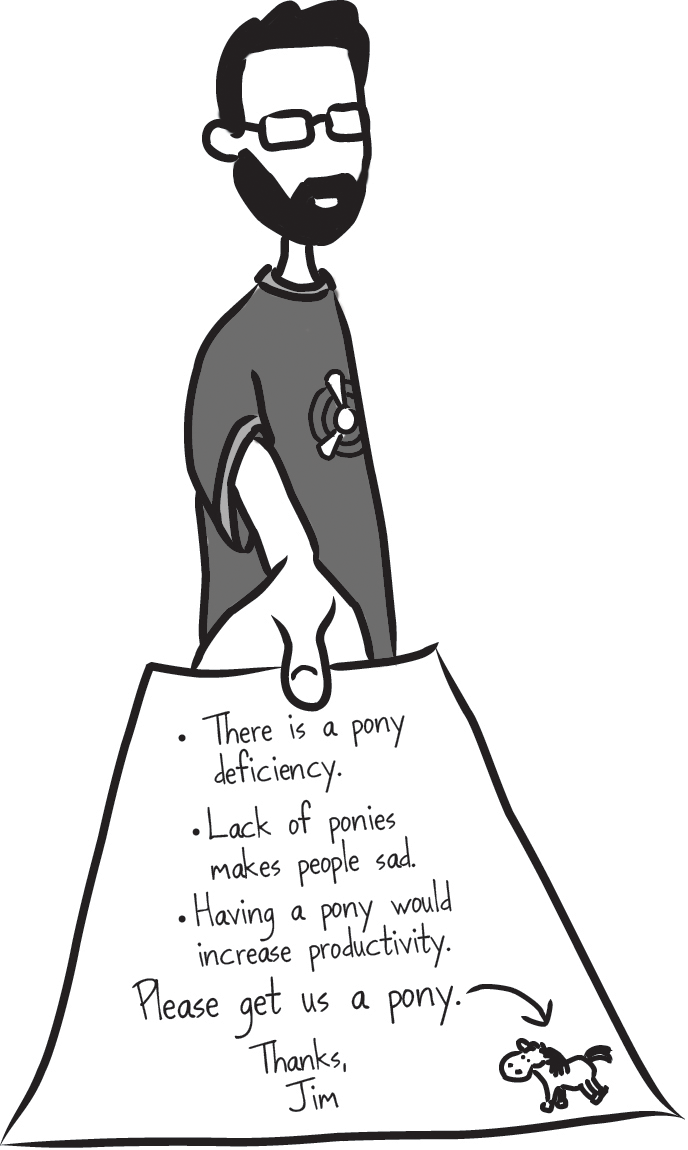 • There is a pony
deficiency.
• Lack of ponies
makes people sad.
• Having a pony would
increase productivity.
Please get us a pony.
Thanks,
Jim